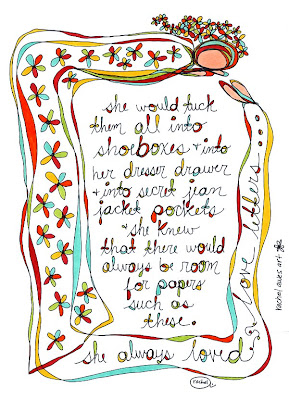 she would tuck
them all into
shoeboxes + into
her dresser drawer
+ into secret jean
jacket pockets
+ she knew
that there would
always be room
for papers
such as
these.
she always loved
love letters
rachel awes art
rachel